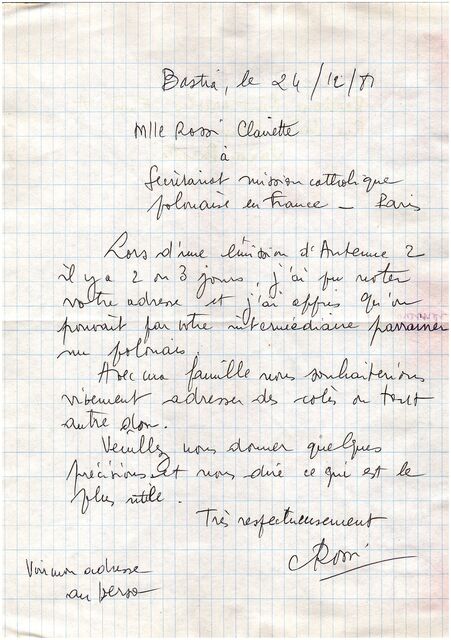 Bastia, le 24/12/81
Mlle Rossi Clairette
à
Secrétariat mission catholique
polonaise en France - Paris
Lors d'une émission d'Antenne 2
il y a 2 ou 3 jours, j'ai pu noter
votre adresse et j'ai appris qu'on
pouvait par votre intermédiaire parrainer
un polonais.
Avec ma famille nous souhaiterions
vivement adresser des colis ou tout
autre don.
Veuillez nous donner quelques
précisions et nous dire ce qui est le
plus utile.
Très respectueusement
CRossi
Voir mon adresse
au verso